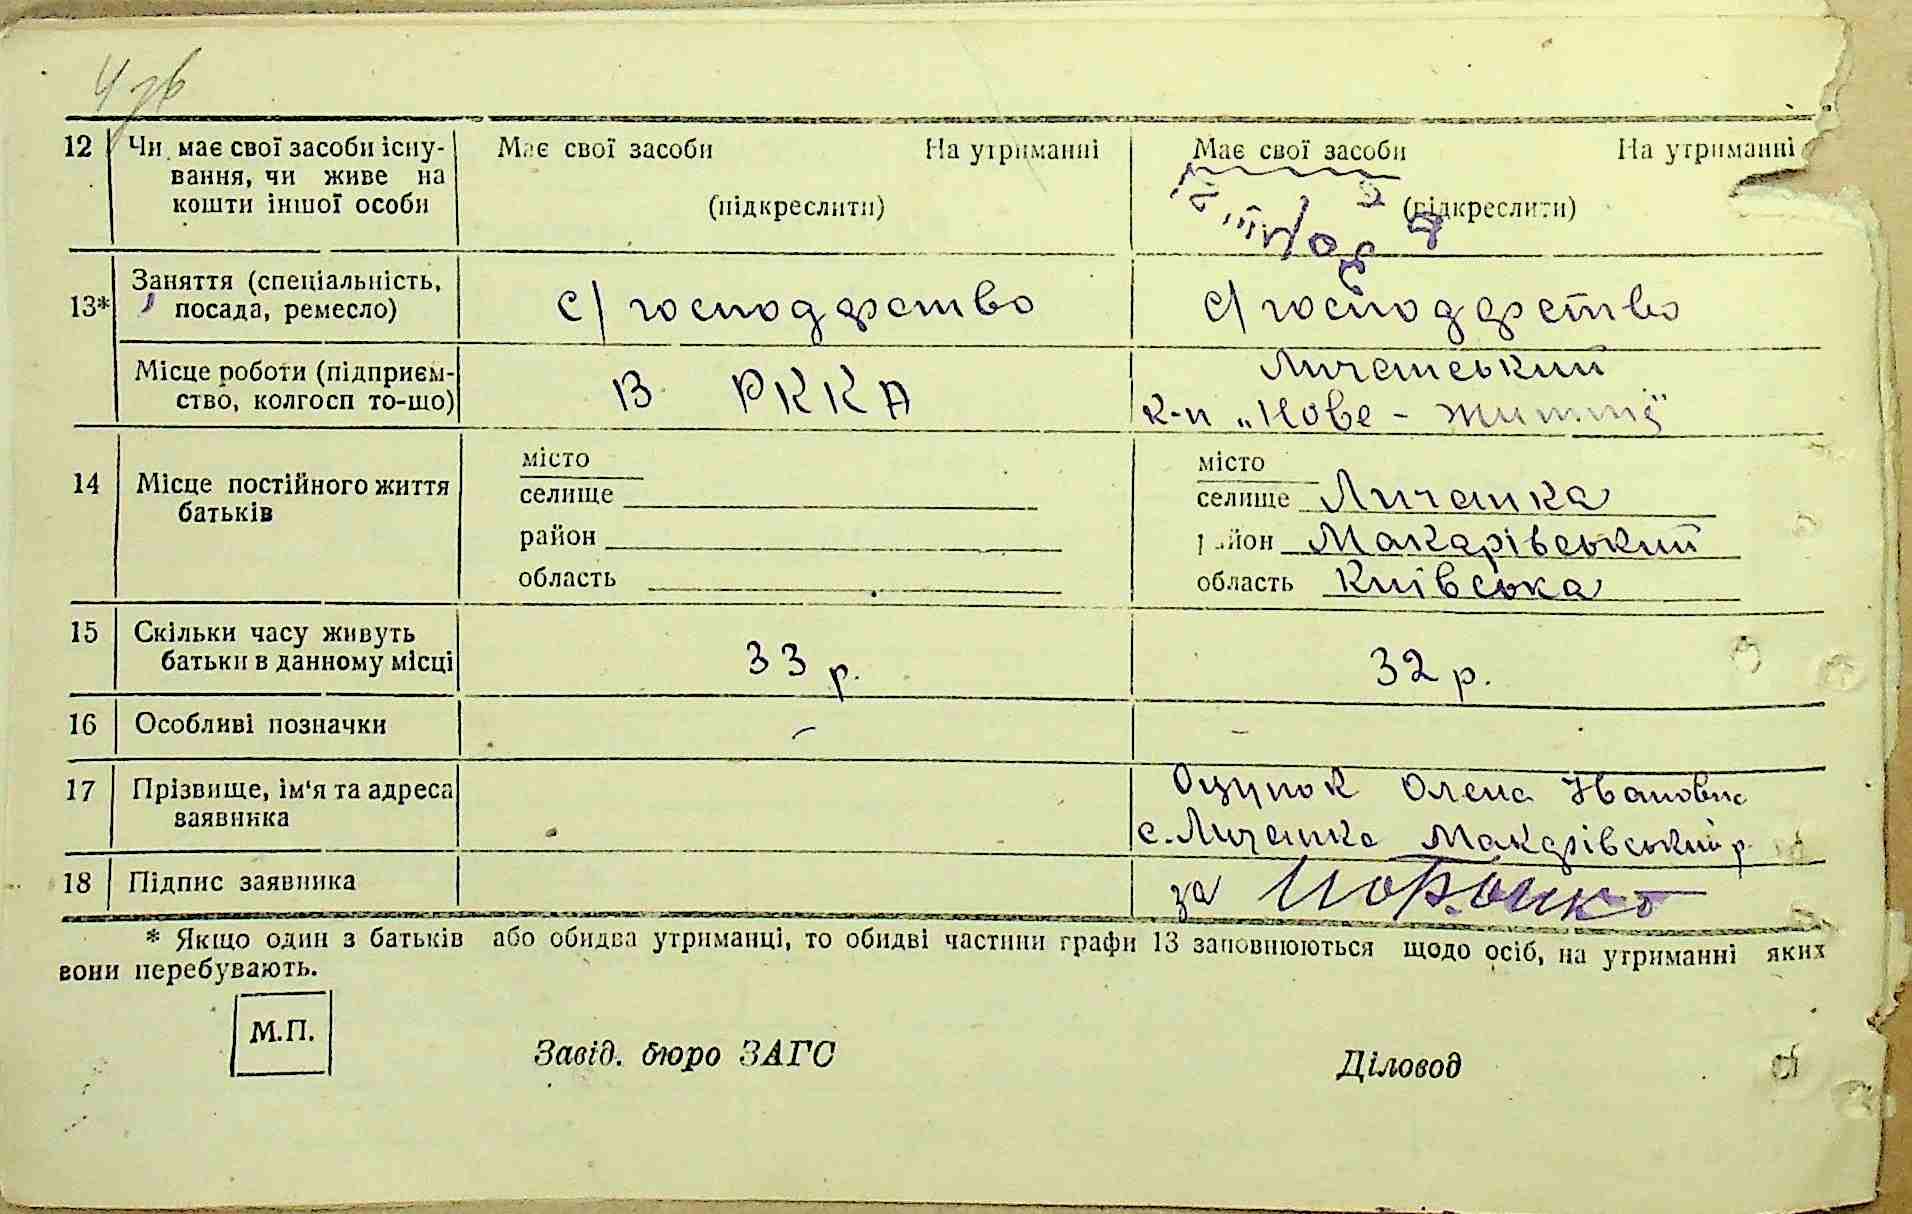 12 Чи має свої засоби існу- Має свої засоби На утриманні Має свої засоби На утриманні
вання, чи живе на
кошти іншої особи (підкреслити) (підкреслити)
13* Заняття (спеціальність, с/господарство с/господарство
посада, ремесло)
Місце роботи (підприєм- В РККА Личанський
ство, колгосп то-що) к-п „Нове - життя"
14 Місце постійного життя місто місто
батьків селище селище Личанка
район район Макарівський
область область Київська
15 Скільки часу живуть 33 р. 32 р.
батьки в данному місці
16 Особливі позначки – –
17 Прізвище, ім'я та адреса Оцупок Олена Івановна
заявника с. Личанка Макарівський р.
18 Підпис заявника за
* Якщо один з батьків або обидва утриманці, то обидві частини графи 13 заповнюються щодо осіб, на утриманні яких
вони перебувають.
М.П.
Завід. бюро ЗАГС Діловод